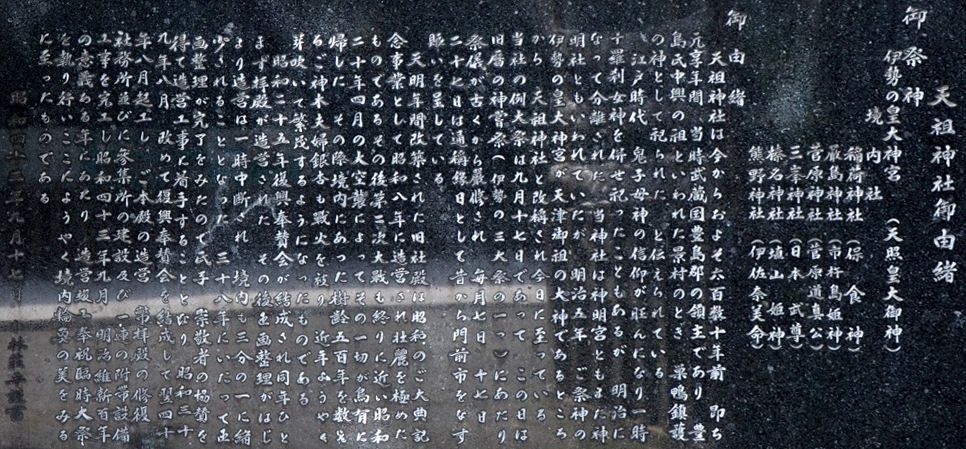 天祖神社御由緒
御祭神
伊勢の皇大神宮　（天照皇大御神）
境内社
稲荷神社（保食神）
厳島神社（市杵島姫神）
菅原神社（菅原道真公）
三峯神社（日本武尊）
榛名神社（埴山姫神）
熊野神社（伊佐奈美命）
御由緒
天祖神社は今からおよそ六百数十年前　即ち
元享年間　当時武蔵国豊島郡の領主であり　豊
島氏中興の祖といわれた景村のとき　巣鴨鎮護
の神として祀られた　と伝えられている
江戸時代　鬼子母神の信仰が旺んになり一時
十羅刹女神を併せ祀ったこともあるが　明治に
なって分離された　当神社は神明宮ともまた神
明社ともいわれていたが　明治五年　ご祭神の
伊勢の皇大神宮が天津御祖の大神であるところ
から　天祖神社と改稱され今日に至っている
当社の例大祭は九月十七日であって　この日は
旧暦の神嘗祭（伊勢の三大祭の一つ）にあたり
祭儀が古くから厳修され　毎月七日　十七日
二十七日は通稱縁日として昔から門前市をなす
賑いを呈している
天明年間改築された旧社殿は昭和のご大典記
念事業として昭和八年に造営され壮麗を極めた
ものであるその後第二次大戦も終りに近い昭和
二十年四月の大空襲によって　その一切が烏有に
帰した　その際境内にあった樹齢五百年を数え
るご神木夫婦銀杏も戦火を被り　近年ようやく
芽吹いて繁茂するようになったものである
昭和二十五年復興奉賛会が結成され同年ひと
まず拝殿が造営　された　その後区画整理がはじ
まり造営は一時中断され　境内も三分の一に縮
少されるにいたった　三十八年にいたって区
画整理が完了をみたので氏子　崇敬者の協賛を
得て造営工事に着手することとなり　昭和三十
九年八月　改めて復興奉賛会を結成して翌四十
年八月起工し　ご本殿の造営　幣拝殿の修復
社務所並びに参集所の建設及び一連の附帯設備
の工事を完工し昭和四十三年九月　明治維新百年
の意義ある年にあたり　造営竣工奉祝臨時大祭
を執り行いここにようやく境内輪奐の美をみる
に至ったものである
昭和四十三年九月十七日